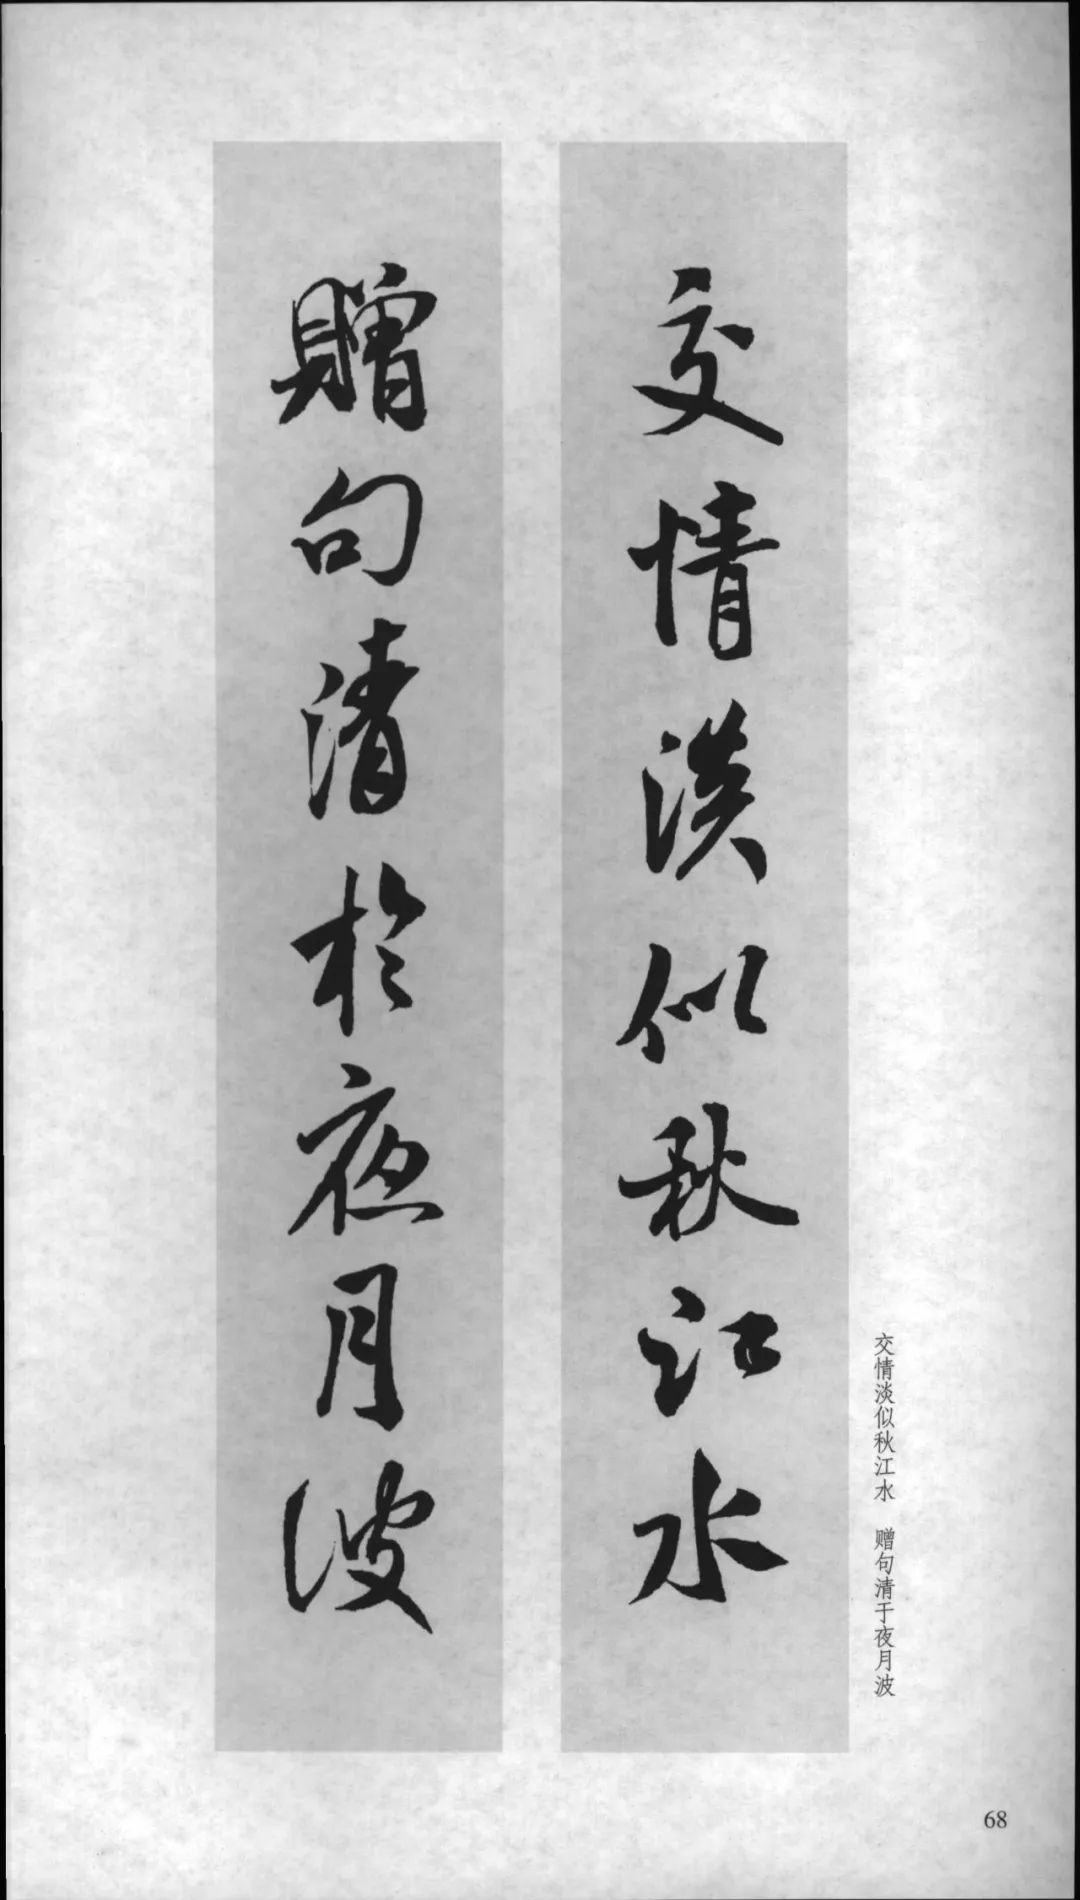 交情淡似秋江水
贈句清於夜月波
交情淡似秋江水 赠句清于夜月波
68